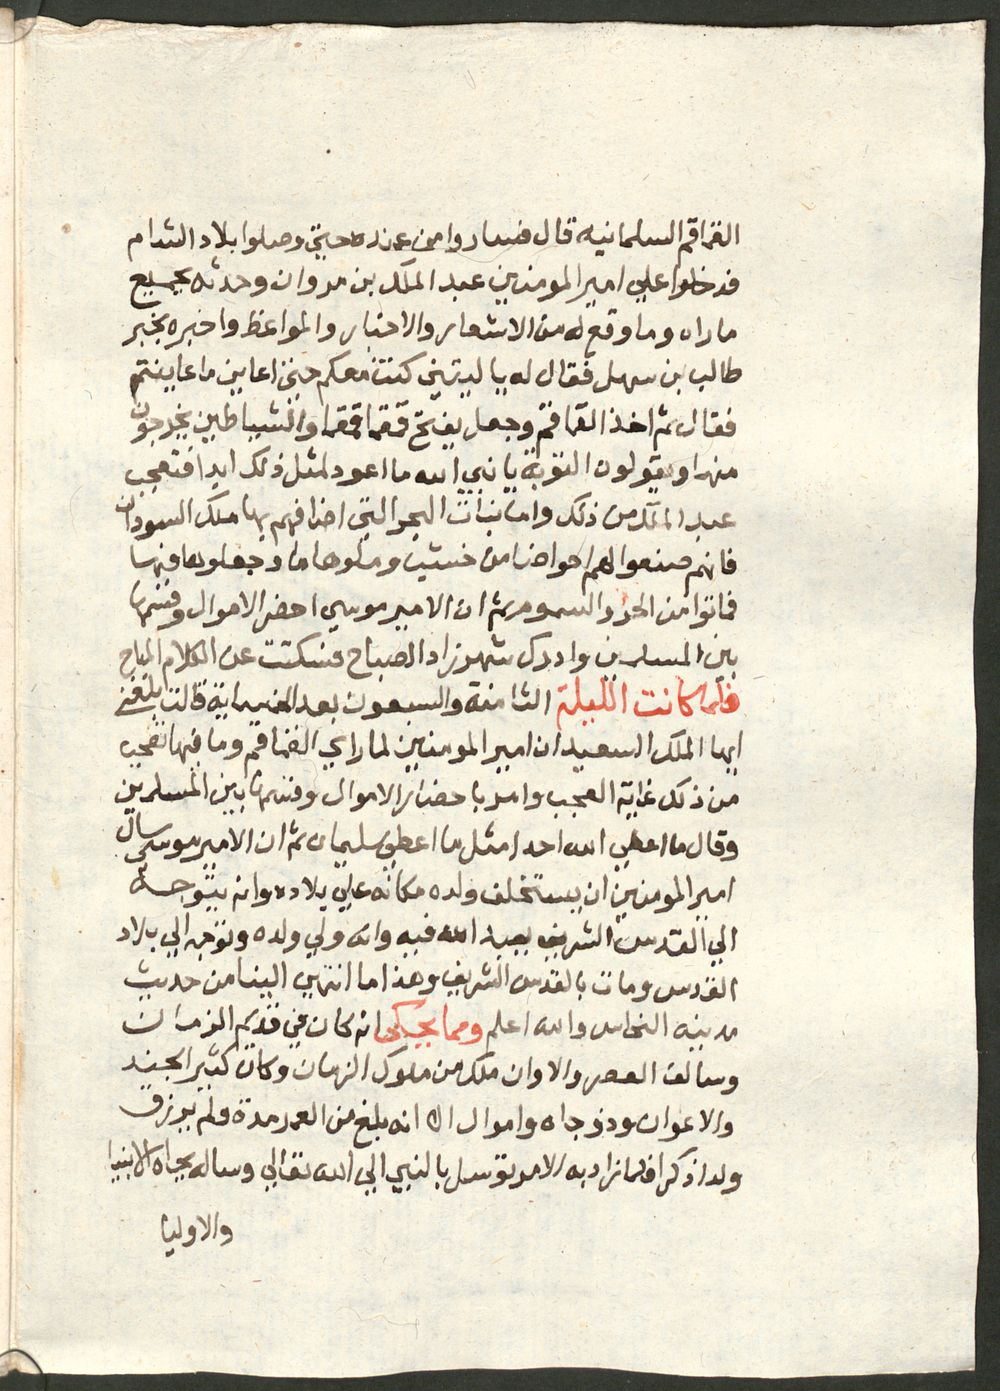 القماقم السلمانيه قال فساروا من عنده حتي وصلوا بلاد الشام
فدخلوا علي امير المومنين عبد الملك بن مروان وحدثه بجميع
ماراه وما وقع له من الاشعار والاخبار والمواعظ واخبره بخبر
طالب بن سهل فقال له يا ليتني كنت معكم حتي اعاين ما عاينتم
فقال ثم اخذ القماقم وجعل يفتح قمقما قمقما والشياطين يخرجون
منها ويقولون التوبة يا نبي الله ما اعود لمثل ذلك ابدا فتعجب
عبد الملك من ذلك واما بنات البحر التي اضافهم بها ملك السودان
فانهم صنعوا لهم احواضا من خشب وملوها ما وجعلوها فيها
فماتوا من الحر والسموم ثم ان الامير موسي احضر الاموال وقسمها
بين المسلمين وادرك شهرزاد الصباح فسكتت عن الكلام المباح
فلما كانت الليلة الثامنة والسبعون بعد الخمسماية قالت بلغني
ايها الملك السعيد ان امير المومنين لما راي القماقم وما فيها تعجب
من ذلك غاية العجب وامر باحضار الاموال وقسمها بين المسلمين
وقال ما اعطي الله احدا مثل ما اعطي سليمان ثم ان الامير موسي سال
امير المومنين ان يستخلف ولده مكانه علي بلاده وانه يتوجه
الي القدس الشريف يعبد الله فيه وانه ولي ولده وتوجه الي بلاد
القدس ومات بالقدس الشريف وهذا ما انتهي الينا من حديث
مدينه النحاس والله اعلم ومما يحكي انه كان في قديم الزمان
وسالف العصر والاوان ملك من ملوك الزمان وكان كثير الجند
والاعوان وذو جاه واموال الا انه بلغ من العمر مدة ولم يرزق
ولدا ذكرا فلما زاد به الامر توسل بالنبي الي الله تعالي وساله بجاه الانبيا
والاوليا